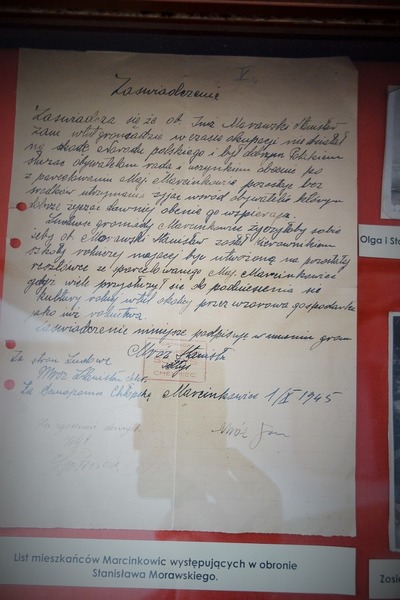 V
Zaświadczenie
Zaświadcza się że ob. Inż. Morawski Stanisław
zam. w tut. gromadzie w czasie okupacji nie działał
na szkodę Narodu polskiego i był dobrym Polakiem
służąc obywatelom radą i uczynkiem obecnie po
parcelowaniu Maj. Marcinkowice pozostaje bez
środków utrzymania żyjąc wśród obywateli którym
dobrze życząc dawniej obecnie go wspierają.
Ludność gromady Marcinkowic życzyłaby sobie
żeby ob. Morawski Stanisław został kierownikiem
szkoły rolniczej mającej być utworzoną na pozostałej
resztówce ze parcelowanego Maj. Marcinkowice
gdyż wiele przysłużył się do podniesienia się
kultury rolnej w tut. okolicy przez wzorową gospodarkę
jako inż. rolnictwa.
Zaświadczenie niniejsze podpisuje w imieniu grom.
Mróz Stanisł
Za stron. Ludowe
Mróz Stanisław
Za Samopomoc Chłopską, Marcinkowice 1/X 1945
Mróz Jan
List mieszkańców Marcinkowic występujących w obronie
Stanisława Morawskiego.
Olga i Sta
Zosi